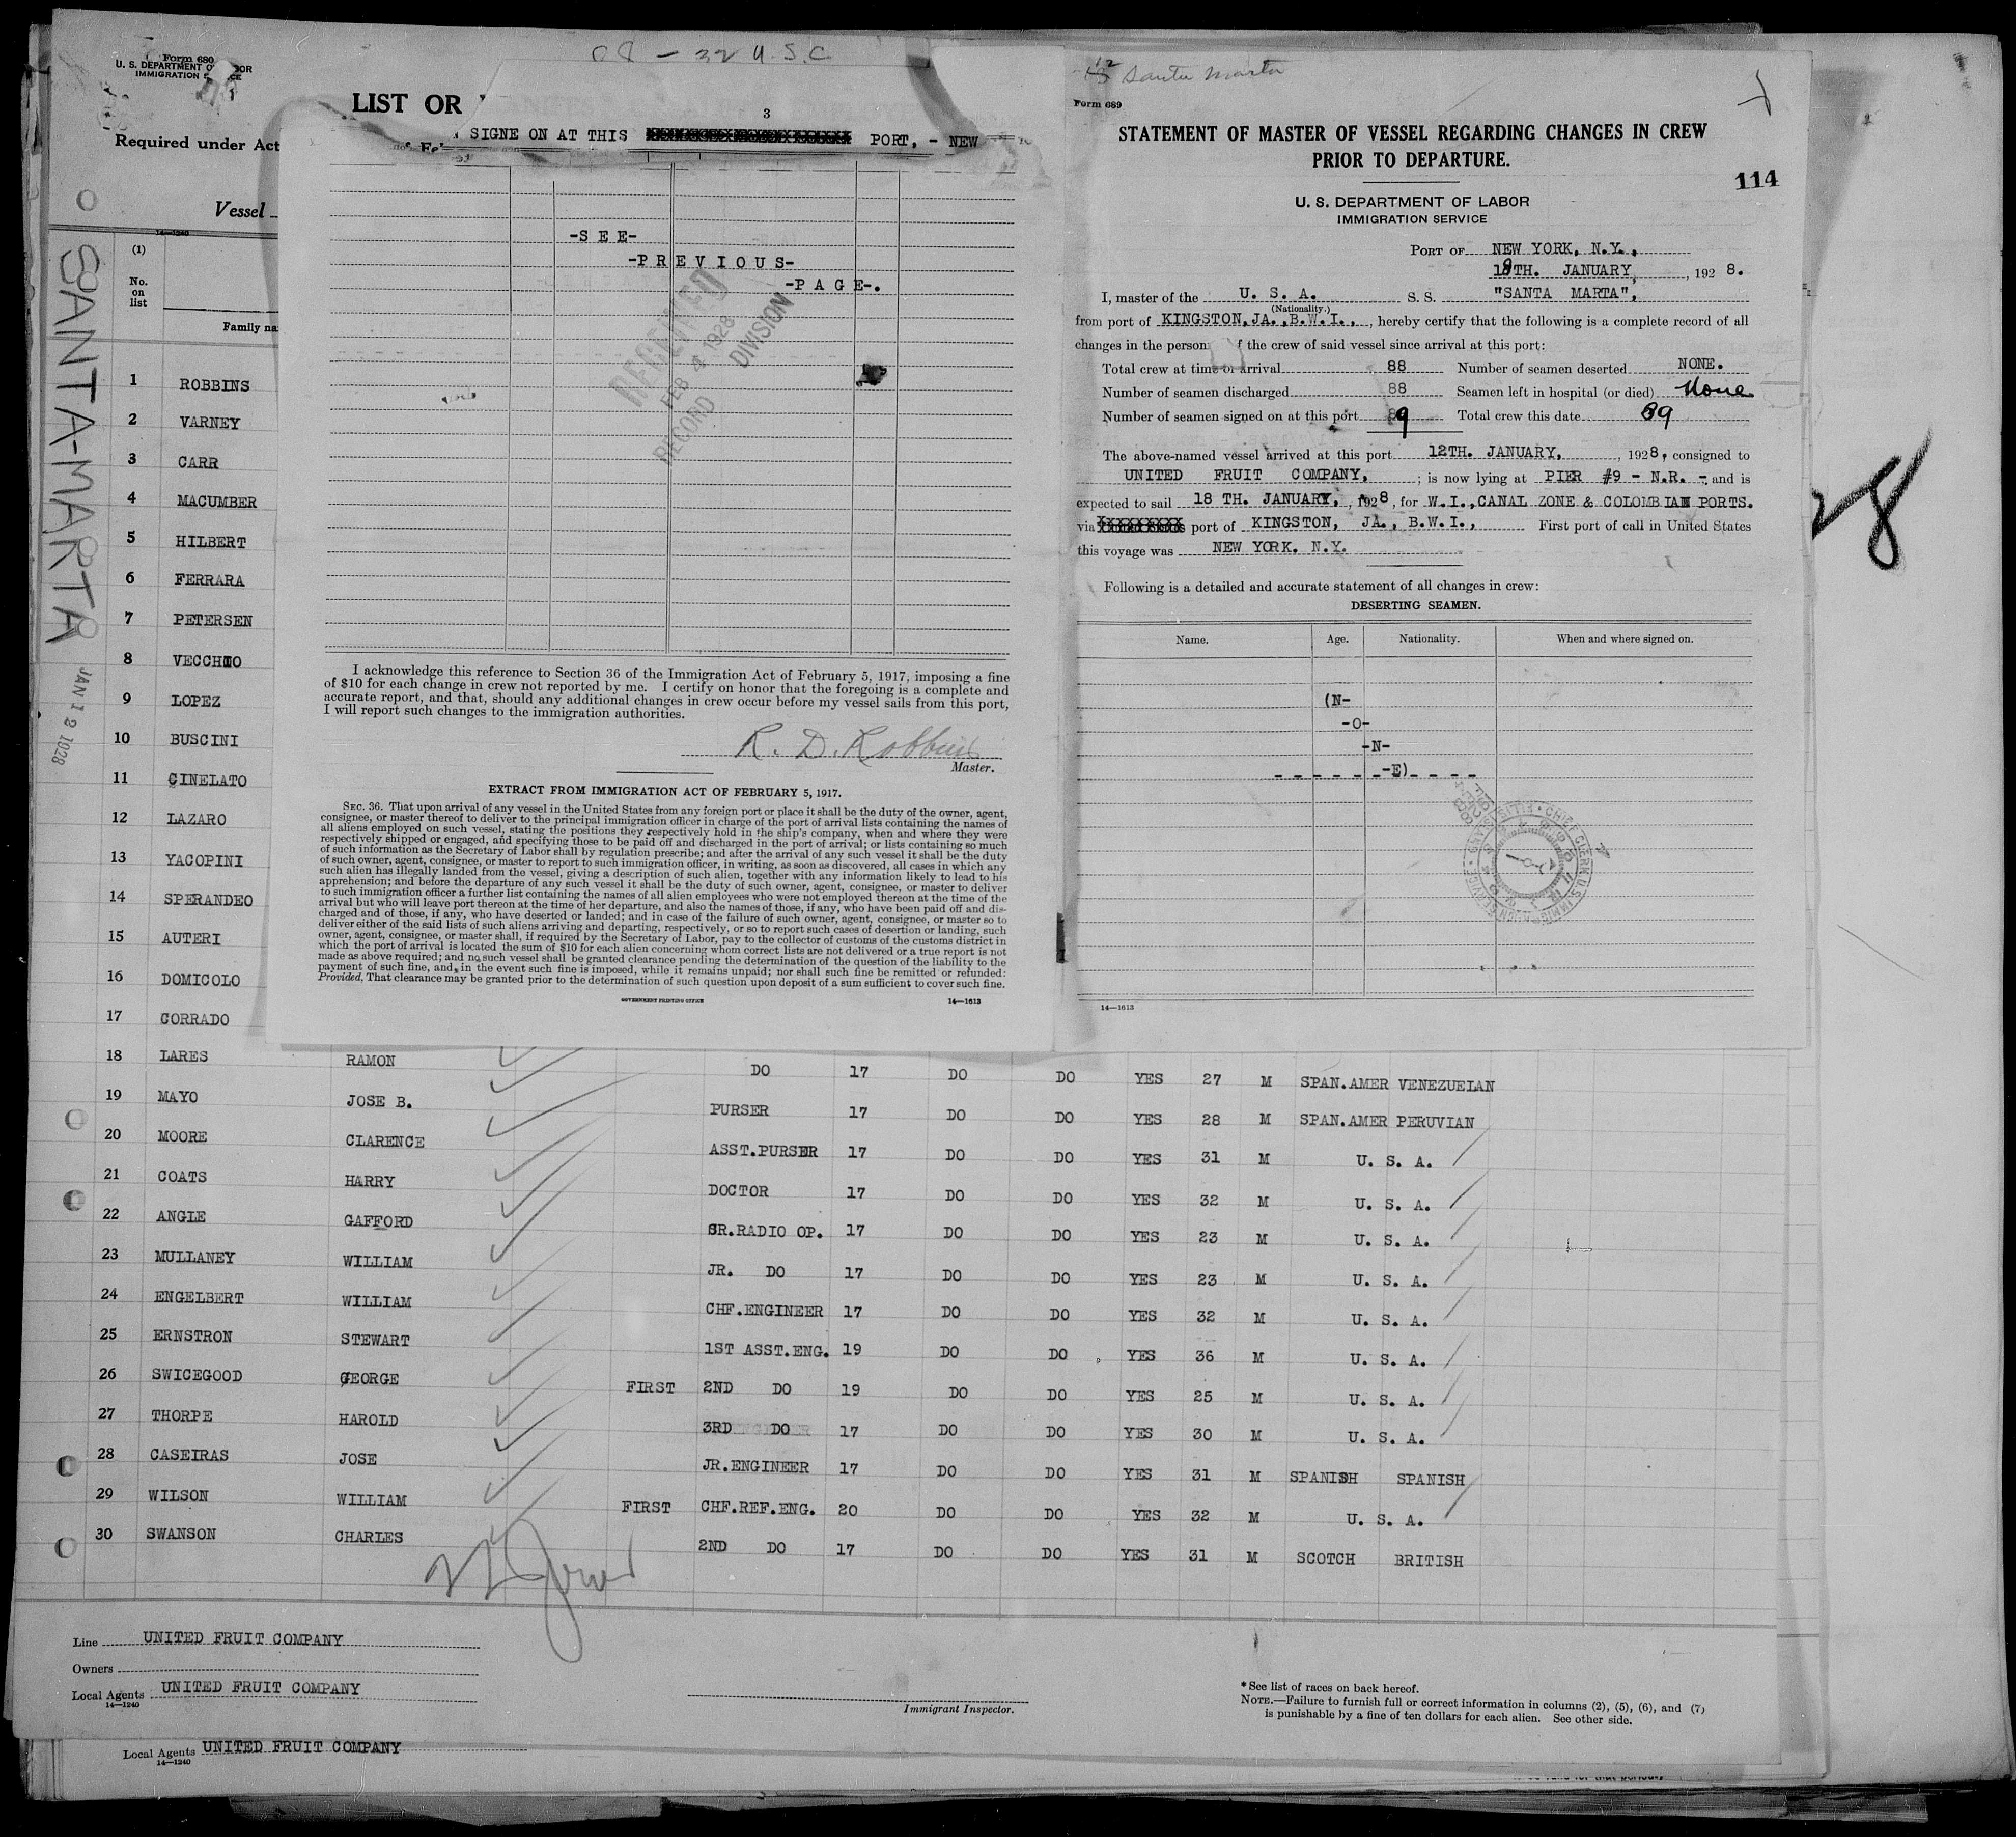 08 - 32 U.S.C
Form 680
U. S. DEPARTMENT O
IMMIGRATION
Required under Act
Vessel
14-1240
(1)
No.
on
list
Family na
SANTA-MARTA
JAN 12 1928
1 ROBBINS
2 VARNEY
3 CARR
4 MACUMBER
5 HILBERT
6 FERRARA
7 PETERSEN
8 VECCHIO
9 LOPEZ
10 BUSCINI
11 CINELATO
12 LAZARO
13 YACOPINI
14 SPERANDEO
15 AUTERI
16 DOMICOLO
17 CORRADO
LIST OR
3
SIGNE ON AT THIS PORT, - NEW
-S E E-
-P R E V I O U S-
-P A G E-.
RECEIVED
FEB 4 1928
RECORD DIVISION
I acknowledge this reference to Section 36 of the Immigration Act of February 5, 1917, imposing a fine
of $10 for each change in crew not reported by me. I certify on honor that the foregoing is a complete and
accurate report, and that, should any additional changes in crew occur before my vessel sails from this port,
I will report such changes to the immigration authorities.
R. D. Robbins
Master.
EXTRACT FROM IMMIGRATION ACT OF FEBRUARY 5, 1917.
SEC. 36. That upon arrival of any vessel in the United States from any foreign port or place it shall be the duty of the owner, agent,
consignee, or master thereof to deliver to the principal immigration officer in charge of the port of arrival lists containing the names of
all aliens employed on such vessel, stating the positions they respectively hold in the ship's company, when and where they were
respectively shipped or engaged, and specifying those to be paid off and discharged in the port of arrival; or lists containing so much
of such information as the Secretary of Labor shall by regulation prescribe; and after the arrival of any such vessel it shall be the duty
of such owner, agent, consignee, or master to report to such immigration officer, in writing, as soon as discovered, all cases in which any
such alien has illegally landed from the vessel, giving a description of such alien, together with any information likely to lead to his
apprehension; and before the departure of any such vessel it shall be the duty of such owner, agent, consignee, or master to deliver
to such immigration officer a further list containing the names of all alien employees who were not employed thereon at the time of the
arrival but who will leave port thereon at the time of her departure, and also the names of those, if any, who have been paid off and dis-
charged and of those, if any, who have deserted or landed; and in case of the failure of such owner, agent, consignee, or master so to
deliver either of the said lists of such aliens arriving and departing, respectively, or so to report such cases of desertion or landing, such
owner, agent, consignee, or master shall, if required by the Secretary of Labor, pay to the collector of customs of the customs district in
which the port of arrival is located the sum of $10 for each alien concerning whom correct lists are not delivered or a true report is not
made as above required; and no such vessel shall be granted clearance pending the determination of the question of the liability to the
payment of such fine, and, in the event such fine is imposed, while it remains unpaid; nor shall such fine be remitted or refunded:
Provided, That clearance may be granted prior to the determination of such question upon deposit of a sum sufficient to cover such fine.
GOVERNMENT PRINTING OFFICE 14-1613
12 Santa Marta
Form 689
STATEMENT OF MASTER OF VESSEL REGARDING CHANGES IN CREW
PRIOR TO DEPARTURE.
114
U. S. DEPARTMENT OF LABOR
IMMIGRATION SERVICE
PORT OF NEW YORK, N.Y.,
18TH. JANUARY, , 1928.
I, master of the U. S. A. S. S. "SANTA MARTA",
(Nationality.)
from port of KINGSTON, JA., B.W.I., , hereby certify that the following is a complete record of all
changes in the person f the crew of said vessel since arrival at this port:
Total crew at time of arrival 88 Number of seamen deserted NONE.
Number of seamen discharged 88 Seamen left in hospital (or died) None
Number of seamen signed on at this port 89 Total crew this date 89
The above-named vessel arrived at this port 12TH. JANUARY, , 1928, consigned to
UNITED FRUIT COMPANY, ; is now lying at PIER #9 - N.R. - and is
expected to sail 18 TH. JANUARY, , 1928, for W.I., CANAL ZONE & COLOMBIAN PORTS.
via port of KINGSTON, JA., B.W.I., First port of call in United States
this voyage was NEW YORK. N.Y.
Following is a detailed and accurate statement of all changes in crew:
DESERTING SEAMEN.
Name. Age. Nationality. When and where signed on.
(N-
-O-
-N-
-E)
14-1613
28
18 LARES RAMON DO 17 DO DO YES 27 M SPAN.AMER VENEZUELAN
19 MAYO JOSE B. PURSER 17 DO DO YES 28 M SPAN.AMER PERUVIAN
20 MOORE CLARENCE ASST.PURSER 17 DO DO YES 31 M U. S. A.
21 COATS HARRY DOCTOR 17 DO DO YES 32 M U. S. A.
22 ANGLE GAFFORD SR.RADIO OP. 17 DO DO YES 23 M U. S. A.
23 MULLANEY WILLIAM JR. DO 17 DO DO YES 23 M U. S. A.
24 ENGELBERT WILLIAM CHF.ENGINEER 17 DO DO YES 32 M U. S. A.
25 ERNSTRON STEWART 1ST ASST.ENG. 19 DO DO YES 36 M U. S. A.
26 SWICEGOOD GEORGE FIRST 2ND DO 19 DO DO YES 25 M U. S. A.
27 THORPE HAROLD 3RD DO 17 DO DO YES 30 M U. S. A.
28 CASEIRAS JOSE JR.ENGINEER 17 DO DO YES 31 M SPANISH SPANISH
29 WILSON WILLIAM FIRST CHF.REF.ENG. 20 DO DO YES 32 M U. S. A.
30 SWANSON CHARLES 2ND DO 17 DO DO YES 31 M SCOTCH BRITISH
Line UNITED FRUIT COMPANY
Owners
Local Agents UNITED FRUIT COMPANY
14-1240
Immigrant Inspector.
* See list of races on back hereof.
NOTE.—Failure to furnish full or correct information in columns (2), (5), (6), and (7)
is punishable by a fine of ten dollars for each alien. See other side.
Local Agents UNITED FRUIT COMPANY
14-1240